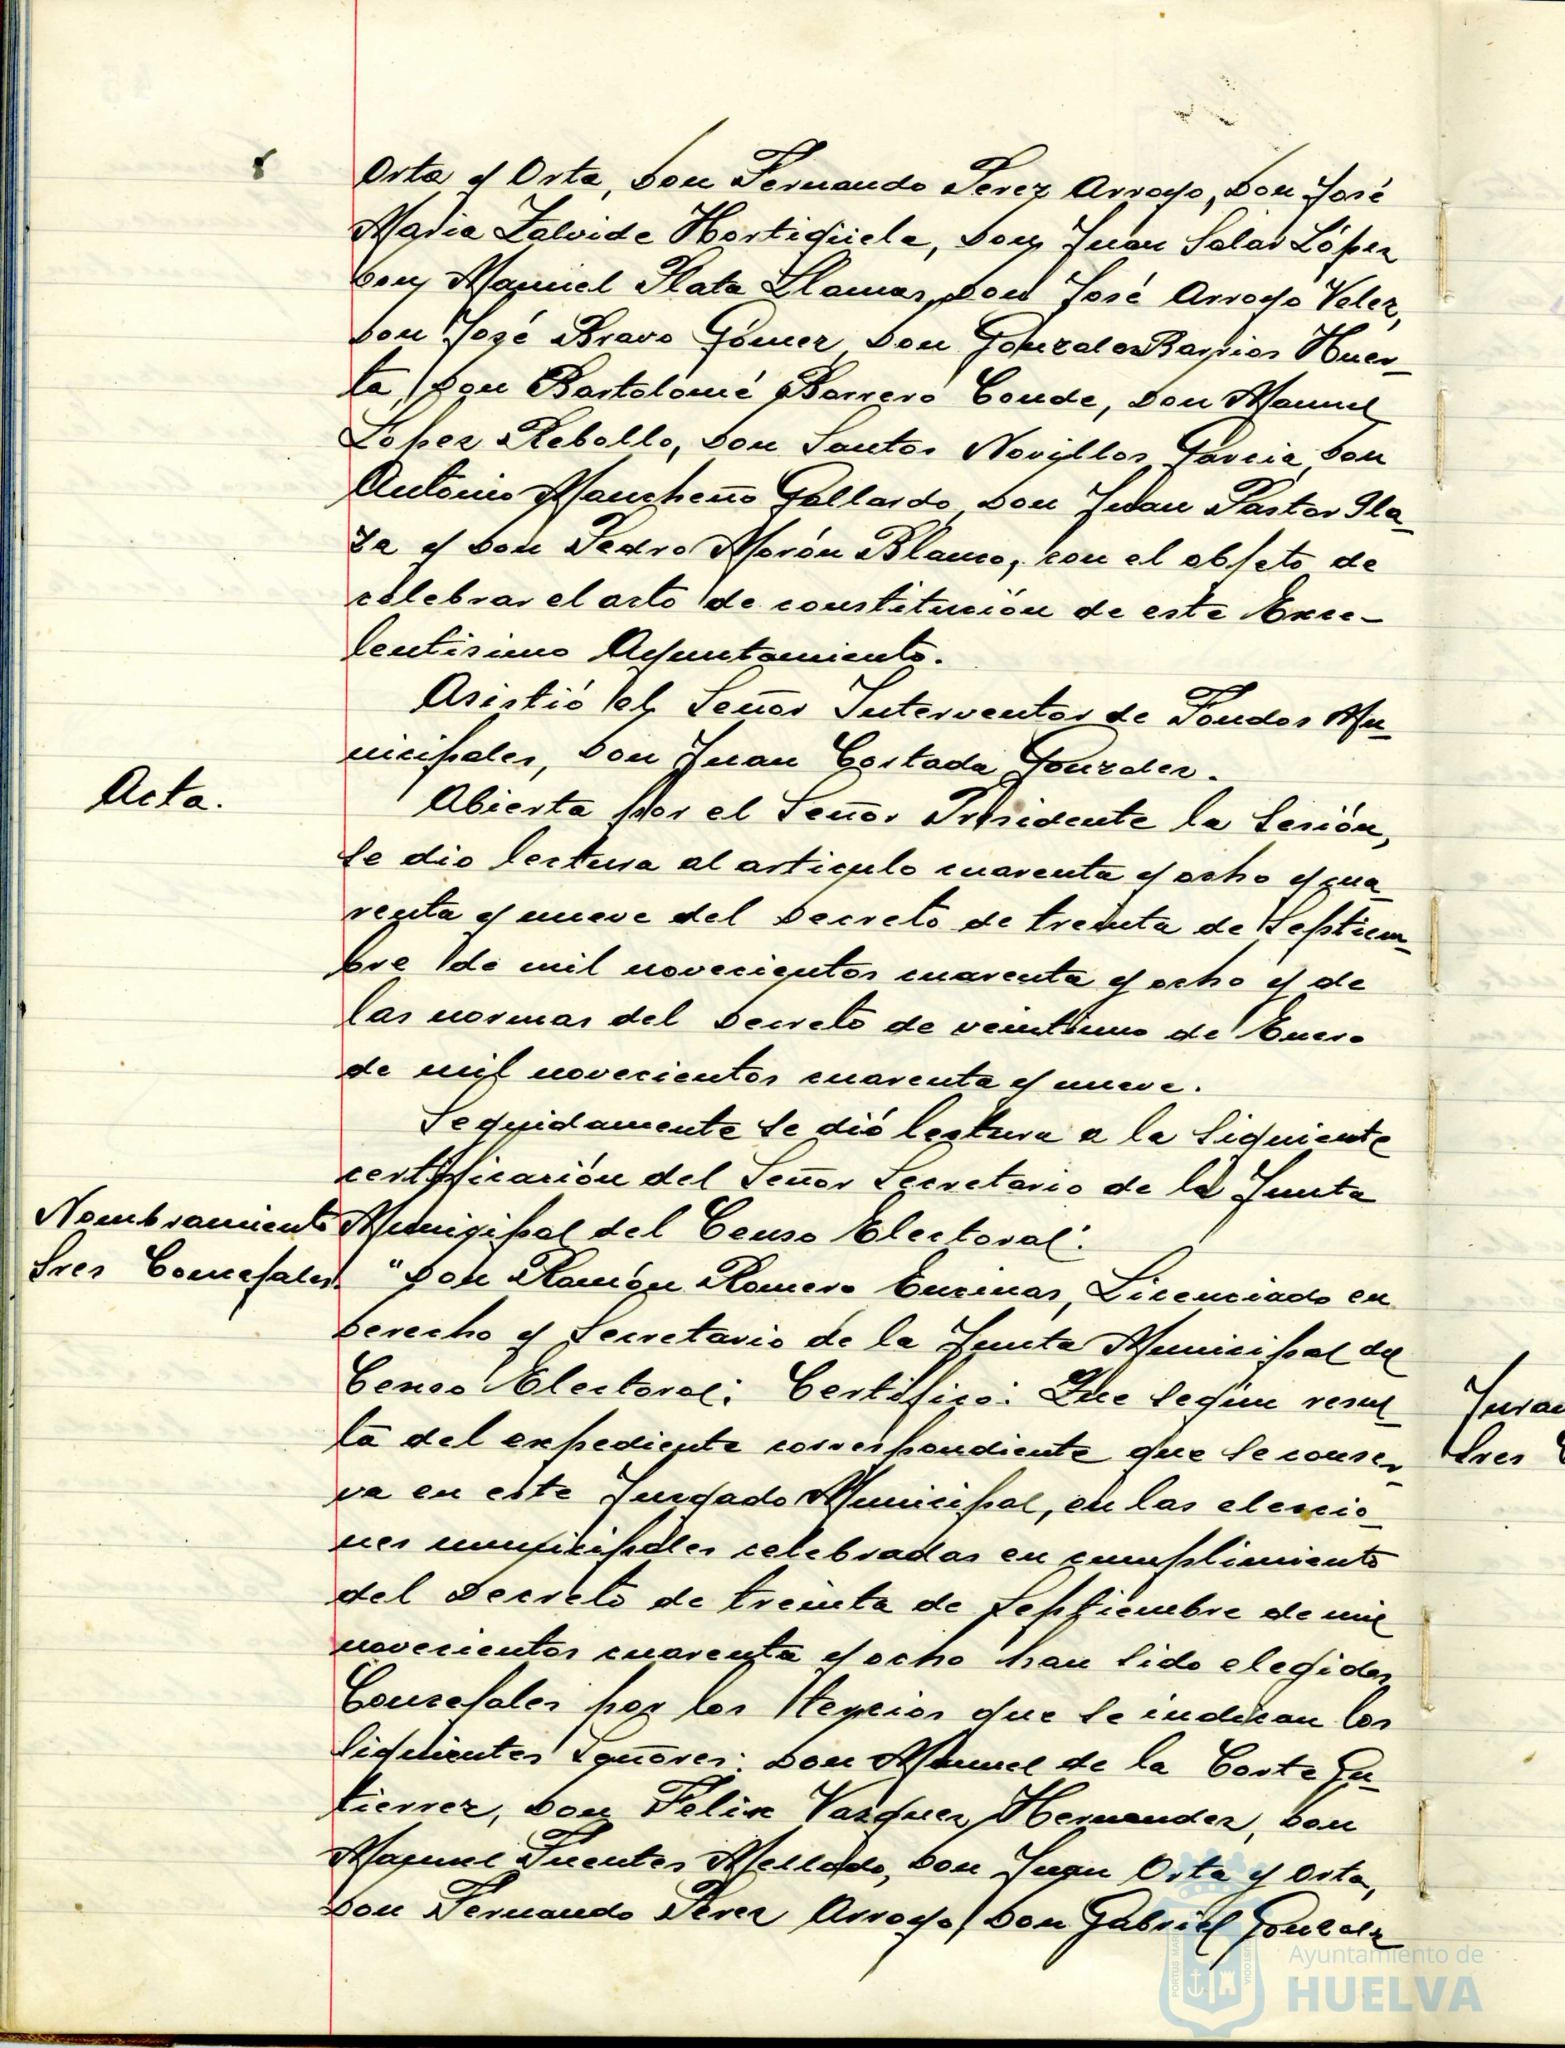 Orta y Orta, Don Fernando Perez Arroyo, Don José
Maria Zalvide Hortigüela, Don Juan Salas López
Don Manuel Plata Llamas, Don José Arroyo Velez,
Don José Bravo Gómez, Don Gonzalo Barrios Huer-
ta, Don Bartolomé Borrero Conde, Don Manuel
Lopez Rebollo, Don Santos Novillos Garcia, Don
Antonio Mancheño Gallardo, Don Juan Pastor Pla-
za y Don Pedro Morón Blanco, con el objeto de
celebrar el acto de constitución de este Exce-
lentisimo Ayuntamiento.
Asistió el Señor Interventor de Fondos Mu-
nicipales, Don Juan Costada Gonzalez.
Acta.
Abierta por el Señor Presidente la Sesión,
se dio lectura al articulo cuarenta y ocho y cua-
renta y nueve del Decreto de treinta de Septiem-
bre de mil novecientos cuarenta y ocho y de
las normas del Decreto de veintiuno de Enero
de mil novecientos cuarenta y nueve.
Seguidamente se dió lectura a la siguiente
certificación del Señor Secretario de la Junta
Nombramiento Municipal del Censo Electoral:
Sres Concejales. "Don Ramón Romero Encinas, Licenciado en
Derecho y Secretario de la Junta Municipal del
Censo Electoral; Certifico: Que según resul-
ta del expediente correspondiente que se conser-
va en este Juzgado Municipal, en las eleccio-
nes municipales celebradas en cumplimiento
del Decreto de treinta de Septiembre de mil
novecientos cuarenta y ocho han sido elegidos
Concejales por los tercios que se indican los
siguientes Señores: Don Manuel de la Corte Gu-
tierrez, Don Felix Vazquez Hernandez, Don
Manuel Fuentes Mellado, Don Juan Orta y Orta,
Don Fernando Perez Arroyo, Don Gabriel Gonzalez
Sres
Ayuntamiento de
HUELVA